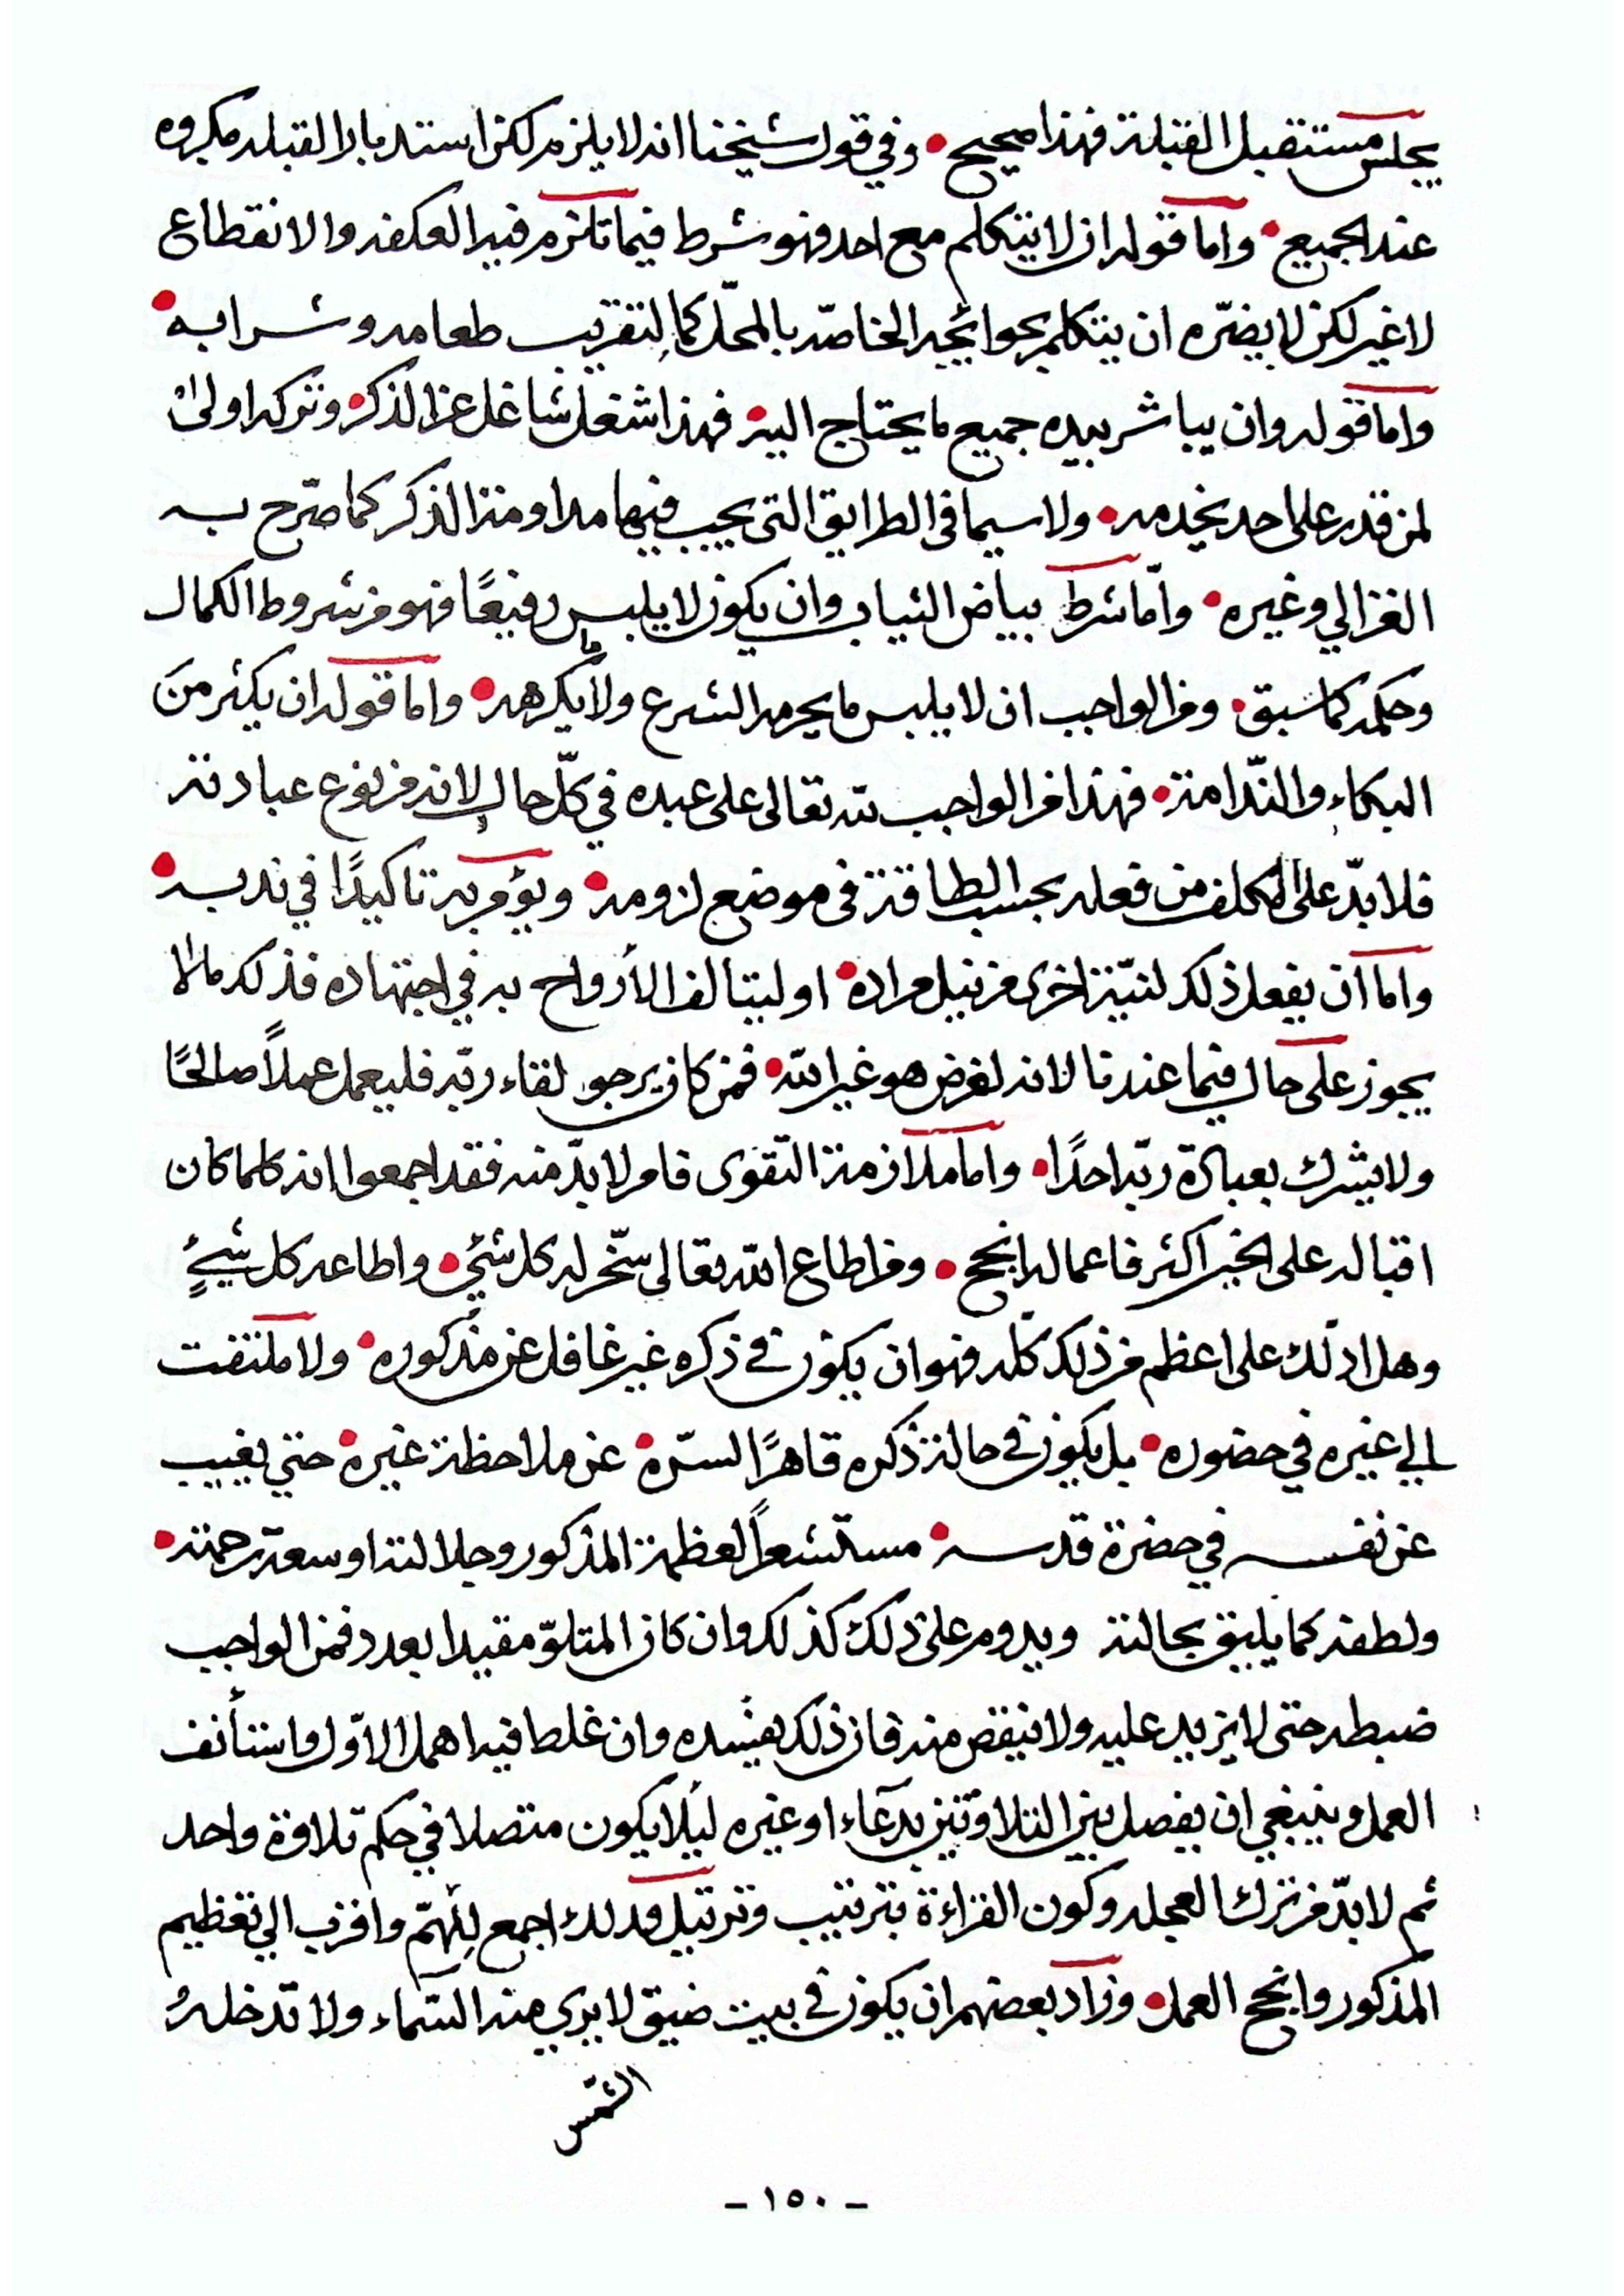 يجلس مستقبل القبلة فهذا صحيح • وفي قول شيخنا انه لا يلزم لكن استدبار القبله مكروه
عند الجميع • واما قوله ان لا يتكلم مع احد فهو شرط فيما تلزم فيه العكفه والانقطاع
لا غير لكن لا يضرّه ان يتكلم بحوائجه الخاصّه بالمحلّ كالتقريب طعامه وشرابه •
واما قوله وان يباشر بيده جميع ما يحتاج اليه • فهذا شغل شاغل عن الذكر • وتركه اولى
لمن قدر على احد يخدمه • ولا سيما في الطرايق التي يجب فيها مداومة الذكر كما صرّح به
الغزالي وغيره • وامّا شرط بياض الثياب وان يكون لا يلبس رفيعًا فهو من شروط الكمال
وحكمه كما سبق • ومن الواجب ان لا يلبس ما يحرمه الشرع ولا ما يكرهه • واما قوله ان يكثر من
البكاء والنّدامة • فهذا من الواجب لله تعالى على عبده في كلّ حال لانه من نوع عبادته
فلا بدّ على المكلف من فعله بحسب الطاقة في موضع لزومه • ويؤمر به تاكيدًا في ندبه •
واما ان يفعل ذلك لنيّة اخرى من نيل مراده • او ليتالف الأرواح به في اجتهاده فذلك مما لا
يجوز على حال فيما عندنا لانه لغرض هو غير الله • فمن كان يرجو لقاء ربّه فليعمل عملاً صالحًا
ولا يشرك بعبادة ربّه احدًا • واما ملازمة التّقوى فامر لا بدّ منه فقد اجمعوا انه كلما كان
اقباله على الخير اكثر فاعماله انجح • ومن اطاع الله تعالى سخّر له كل شئ • واطاعه كل شيءٍ
وهل ادلّك على اعظم من ذلك كلّه فهو ان يكون في ذكره غير غافل عن مذكوره • ولا ملتفت
الي غيره في حضوره • بل يكون في حالة ذكره قاهرًا لسرّه • عن ملاحظة غيره • حتي يغيب
عن نفسه في حضرة قدسه • مستشعرًا لعظمة المذكور وجلالته او سعة رحمته •
ولطفه كما يليق بحالته ويدوم على ذلك كذلك وان كان المتلوّ مقيدا بعدد فمن الواجب
ضبطه حتى لا يزيد عليه ولا ينقص منه فان ذلك يفسده وان غلط فيه اهمل الاوّل واستأنف
العمل وينبغي ان يفصل بين التلاوتين بدعآء او غيره ليلا يكون متصلا في حكم تلاوة واحد
ثم لا بدّ من ترك العجله وكون القراءة بترتيب وترتيل وذلك اجمع للهمّ واقرب الي تعظيم
المذكور وانجح العمل • وزاد بعضهم ان يكون في بيت ضيق لا يري منه السّماء ولا تدخله
الشّمس
- ١٥٠ -